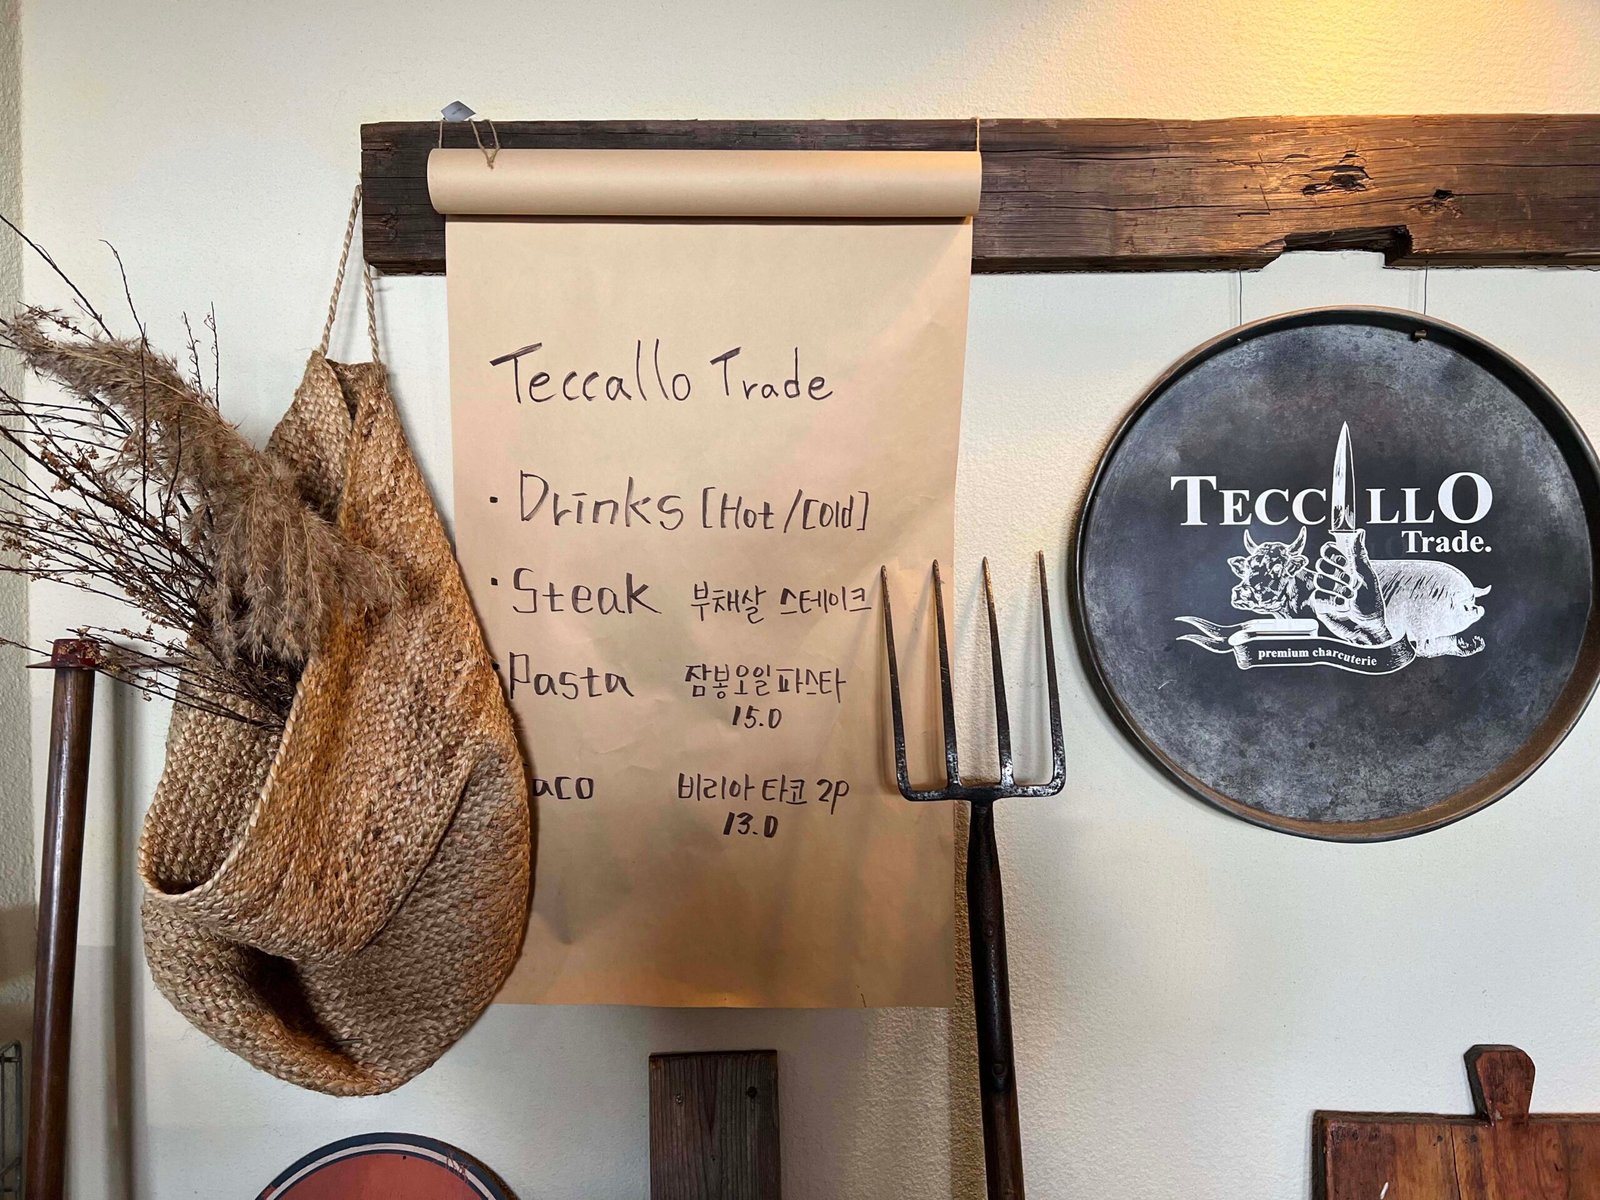 Teccallo Trade
· Drinks [Hot/Cold]
· Steak 부채살 스테이크
Pasta 잠봉오일파스타
15.0
aco 비리아 타코 2p
13.0
TECCALLO
Trade.
premium charcuterie